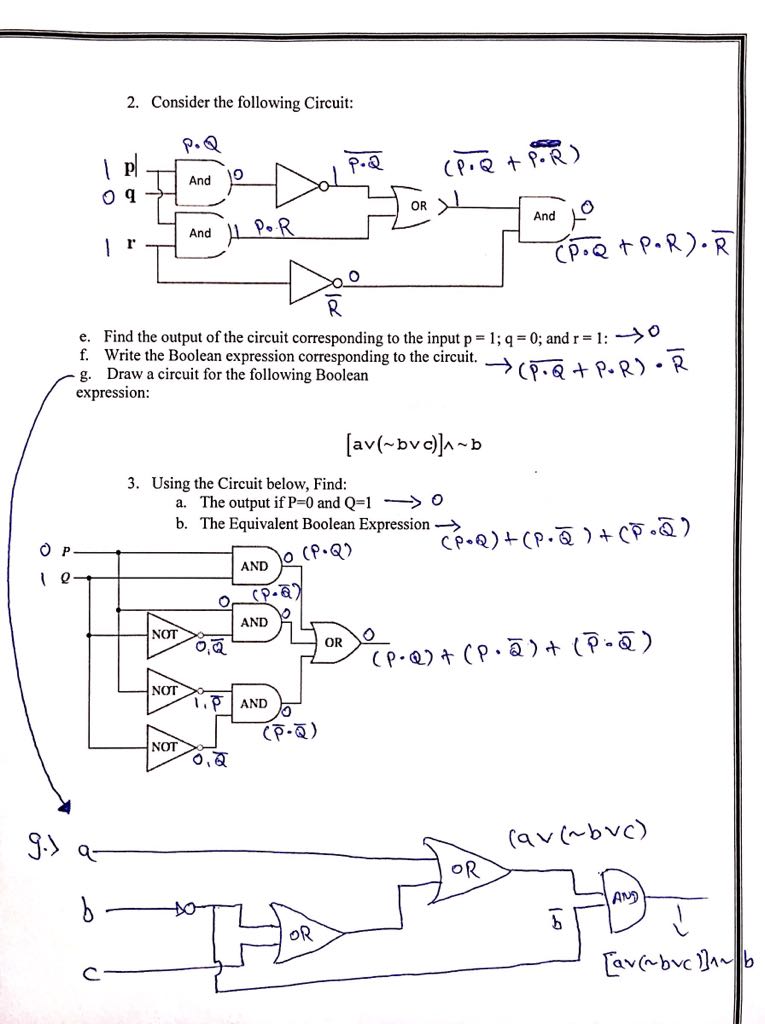 2. Consider the following Circuit:
P.Q
1 p
And
0
1
P.Q̅
(P̅.̅Q̅ + P.R)
0 q
OR
1
And
0
And
1 P.R
1 r
(P̅.̅Q̅ + P.R).R̅
0
R̅
e. Find the output of the circuit corresponding to the input p = 1; q = 0; and r = 1: → 0
f. Write the Boolean expression corresponding to the circuit. → (P̅.̅Q̅ + P.R) . R̅
g. Draw a circuit for the following Boolean
expression:
[av(~bvc)]∧~b
3. Using the Circuit below, Find:
a. The output if P=0 and Q=1 → 0
b. The Equivalent Boolean Expression →
(P.Q)+(P.Q̅)+(P̅.Q̅)
0 P
AND
0 (P.Q)
1 Q
(P.Q̅)
0
AND
0
NOT
0,Q̅
OR
0
(P.Q)+(P.Q̅)+(P̅.Q̅)
NOT
1,P̅
AND
0
(P̅.Q̅)
NOT
0,Q̅
g.) a
OR
(av(~bvc)
b
OR
b̅
AND
c
[av(~bvc)]∧~b